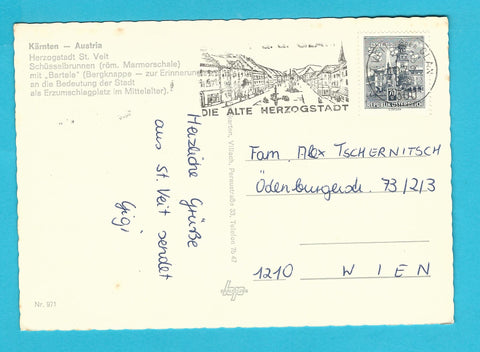 Kärnten — Austria
Herzogstadt St. Veit
Schüsselbrunnen (röm. Marmorschale)
mit „Bartele" (Bergknappe — zur Erinnerung
an die Bedeutung der Stadt
als Erzumschlagplatz im Mittelalter).
DIE ALTE HERZOGSTADT
REPUBLIK ÖSTERREICH
Herzliche Grüße
aus St. Veit sendet
Gigi
Villach, Peraustraße 33, Telefon 76 47
Fam. Alex TSCHERNITSCH
Ödenburgerstr. 73/2/3
1210 WIEN
Nr. 971